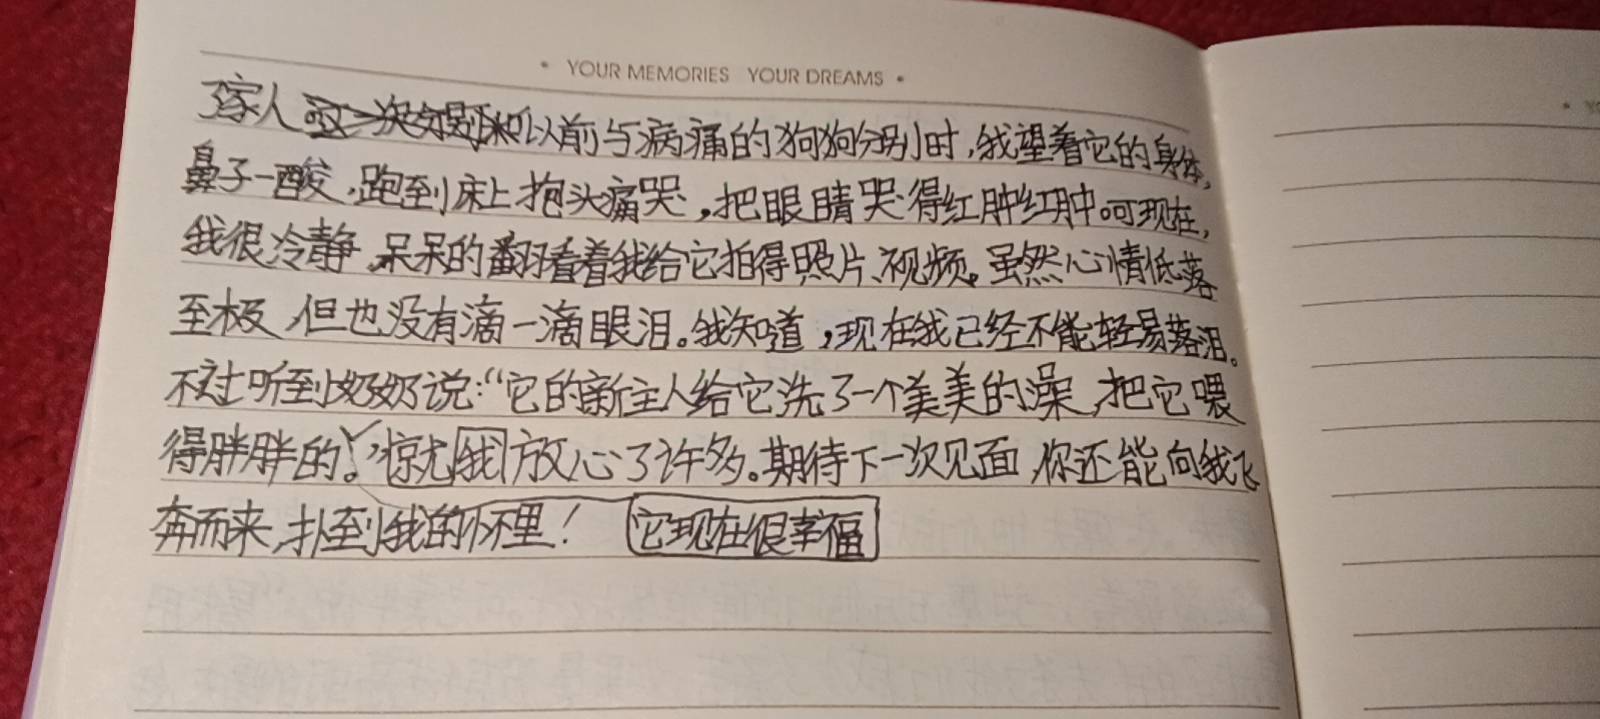 • YOUR MEMORIES YOUR DREAMS •
了家人。以前与病痛的狗狗分别时,我望着它的身体,
鼻子一酸,跑到床上抱头痛哭,把眼睛哭得红肿红肿。可现在,
我很冷静,呆呆的翻看着我给它拍得照片、视频。虽然心情低落
至极,但也没有滴一滴眼泪。我知道,现在我已经不能轻易落泪。
不过听到奶奶说:“它的新主人给它洗了一个美美的澡,把它喂
得胖胖的。”惊尤我放心了许多。期待下一次见面,你还能向我飞
奔而来,扑到我的怀里! 它现在很幸福